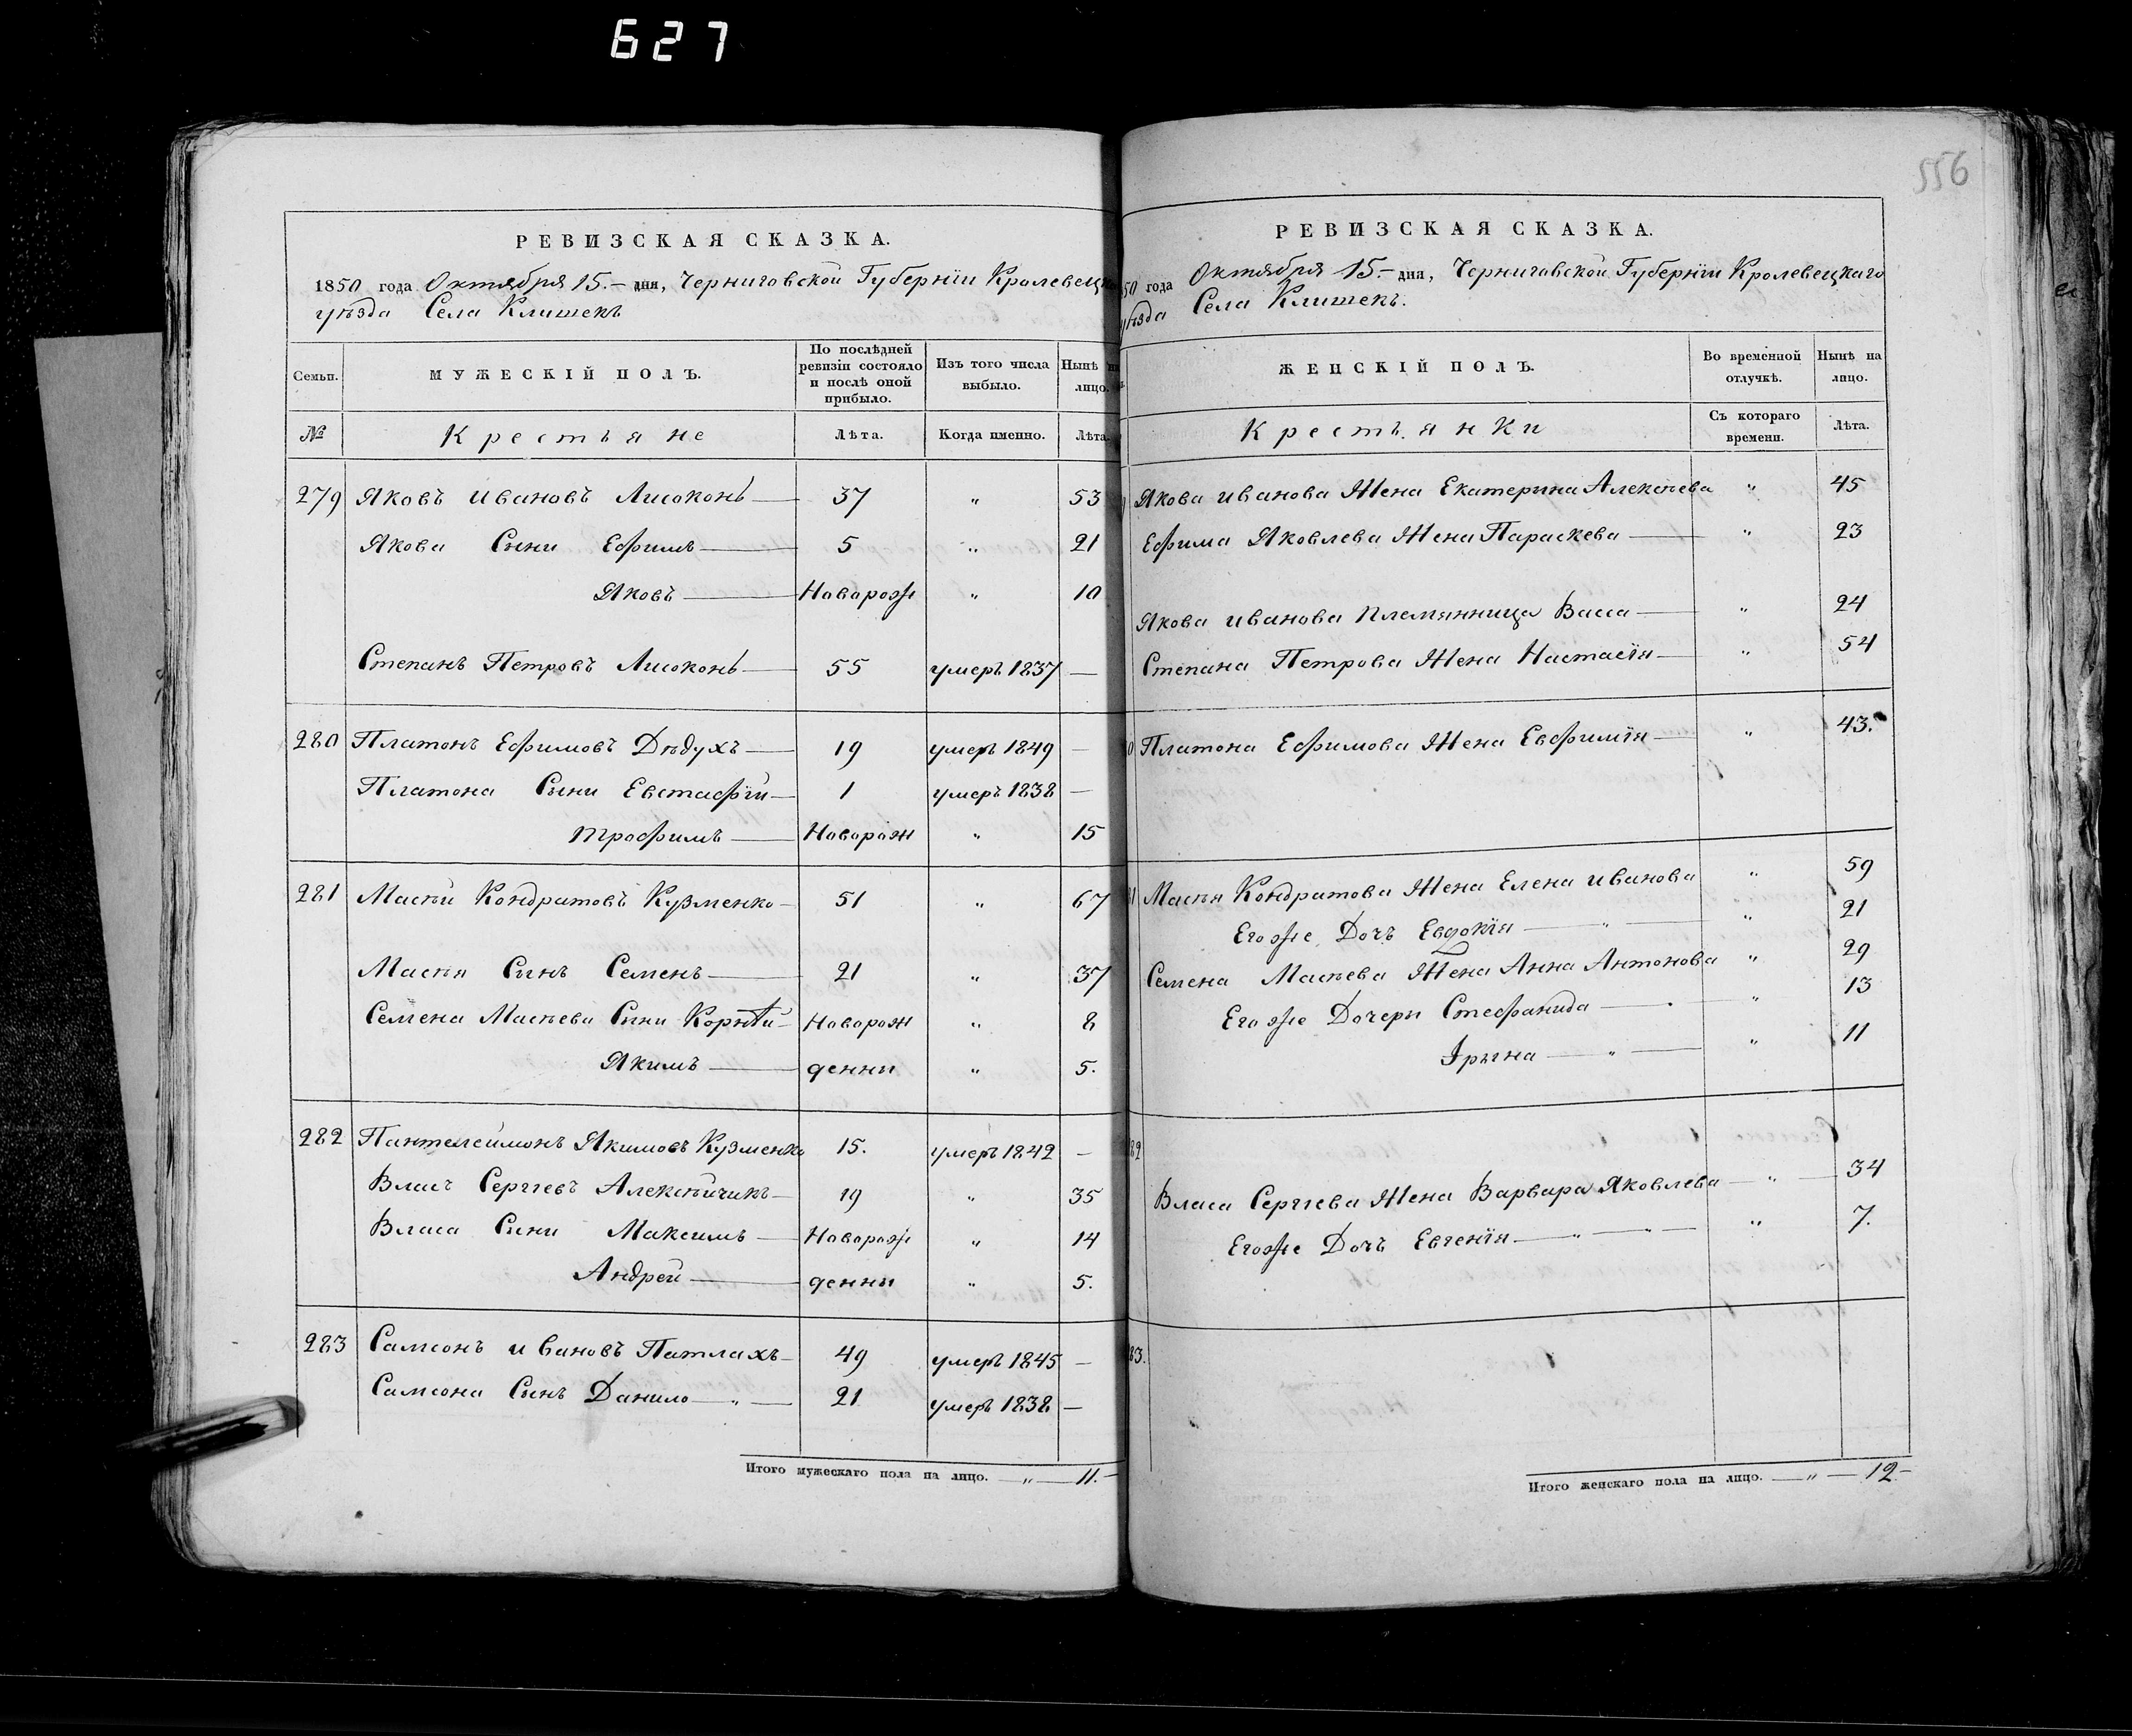 627
556
РЕВИЗСКАЯ СКАЗКА.
1850 года Октября 15.— дня, Черниговской Губернiи Кролевец
уѣзда Села Клишекъ
Семьи. МУЖЕСКІЙ ПОЛЪ. По послѣдней ревизіи состояло и послѣ оной прибыло. Изъ того числа выбыло. Нынѣ на лицо.
№ Крестьяне Лѣта. Когда именно. Лѣта.
279 Яковъ Ивановъ Лисоконь — 37 „ 53
Якова Сыни Ефимъ — 5 „ 21
Яковъ — Новорож „ 10
Степанъ Петровъ Лисоконь — 55 умеръ 1837 —
280 Платонъ Ефимовъ Дѣдухъ — 19 умеръ 1849 —
Платона Сыни Евстафiй — 1 умеръ 1838 —
Трофимъ — Новорож „ 15
281 Масѣй Кондратовъ Кузменко — 51 „ 67
Масѣя Сынъ Семенъ — 21 „ 37
Семена Масѣева Сыни Корнѣй — Новорож „ 8
Якимъ — денни „ 5.
282 Пантелеймонъ Якимовъ Кузменко 15. умеръ 1842 —
Власъ Сергѣевъ Алексѣйчикъ — 19 „ 35
Власа Сыни Максимъ — Новорож „ 14
Андрей — денни „ 5.
283 Самсонъ Ивановъ Патлахъ — 49 умеръ 1845 —
Самсона Сынъ Данило — „ — 21 умеръ 1838 —
Итого мужескаго пола на лицо. — „ — 11.—
РЕВИЗСКАЯ СКАЗКА.
50 года Октября 15.— дня, Черниговской Губернiи Кролевецкаго
уѣзда Села Клишекъ.
ЖЕНСКІЙ ПОЛЪ. Во временной отлучкѣ. Нынѣ на лицо.
Крестьянки Съ котораго времени. Лѣта.
Якова Иванова Жена Екатерина Алексѣева „ 45
Ефима Яковлева Жена Параскева — „ 23
Якова Иванова Племянница Васса — „ 24
Степана Петрова Жена Настасiя — „ 54
0 Платона Ефимова Жена Евфимiя — „ 43.
81 Масѣя Кондратова Жена Елена Иванова „ 59
Егоже Дочъ Евдокiя — „ — „ 21
Семена Масѣева Жена Анна Антонова „ 29
Егоже Дочери Стефанида — „ 13
Iрына — „ — „ 11
82
Власа Сергѣева Жена Варвара Яковлева — „ — 34
Егоже Дочъ Евгенiя — „ — „ — „ 7.
83.
Итого женскаго пола на лицо. — „ — 12.—